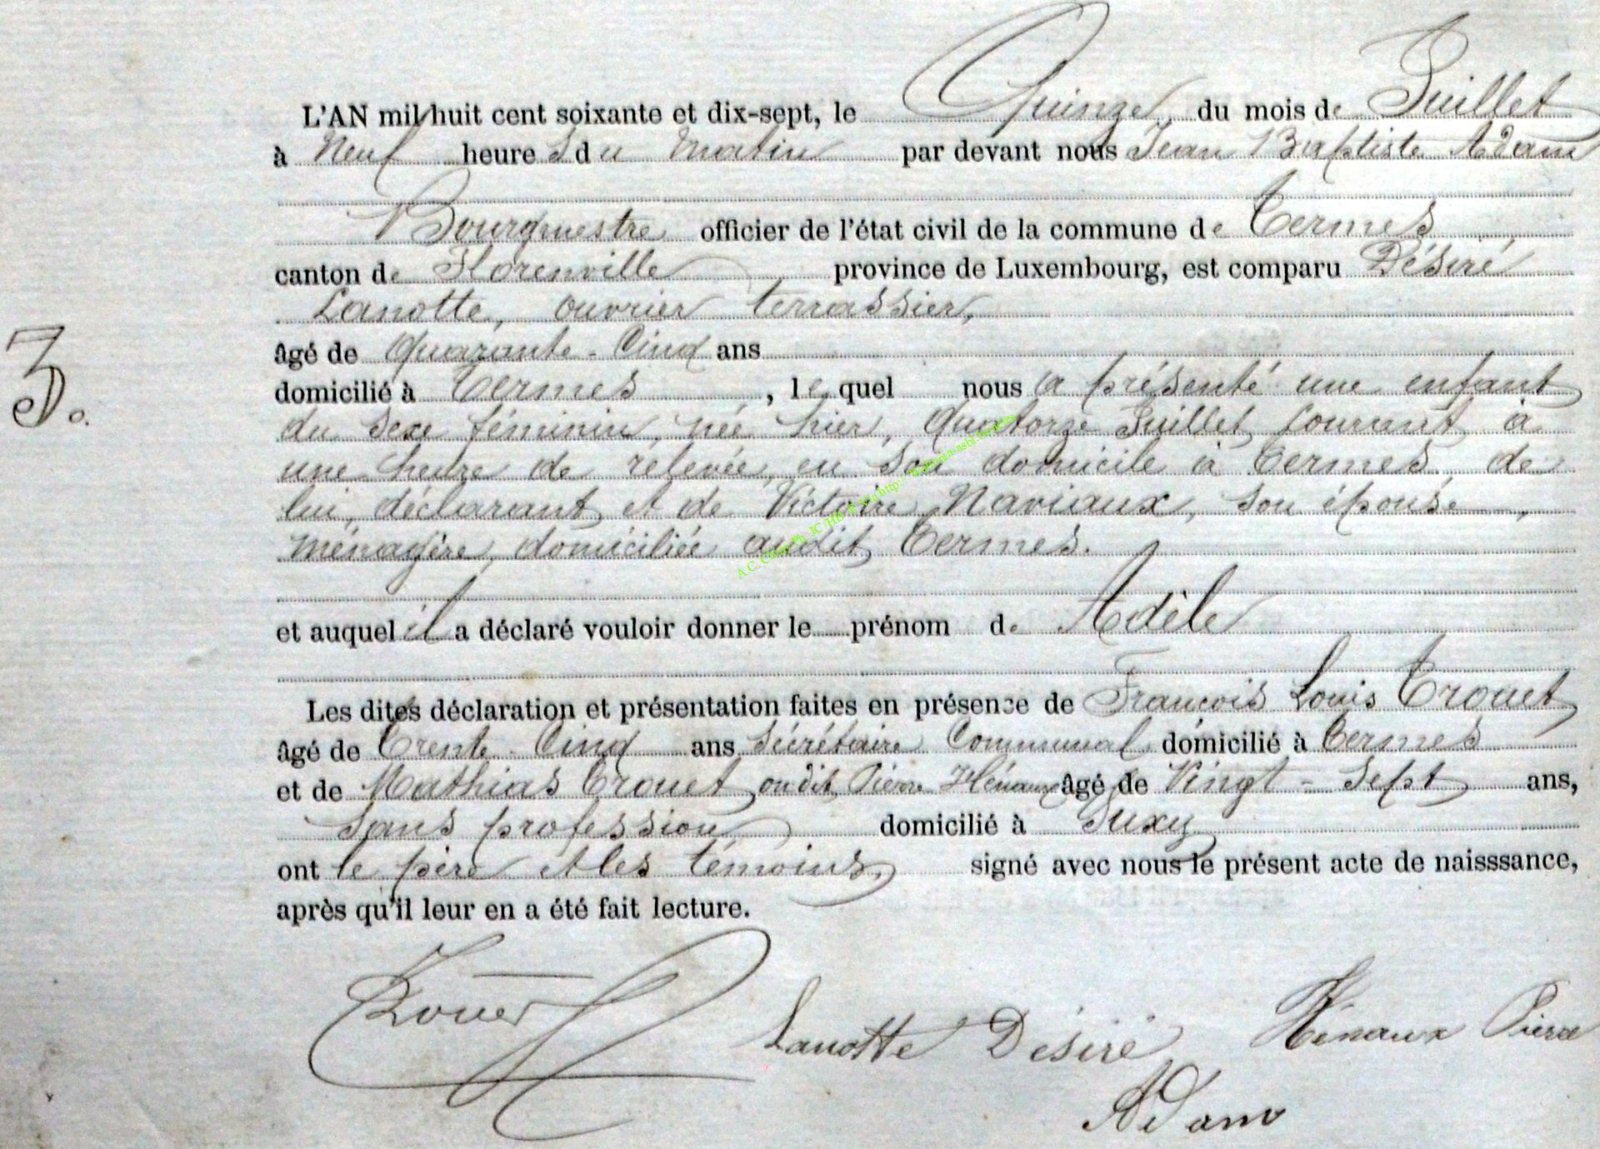 L'AN mil huit cent soixante et dix-sept, le Quinze du mois de Juillet
à Neuf heures du matin par devant nous Jean Baptiste Adam
Bourgmestre officier de l'état civil de la commune de Termes
canton de Florenville province de Luxembourg, est comparu Désiré
Lanotte, ouvrier terrassier,
âgé de Quarante-Cinq ans
domicilié à Termes, lequel nous a présenté une enfant
du sexe féminin, née hier, Quatorze Juillet courant à
une heure de relevée, en son domicile à Termes, de
lui, déclarant et de Victoire Naviaux, son épouse,
ménagère, domiciliée audit Termes.
et auquel il a déclaré vouloir donner le prénom de Adèle
Les dites déclaration et présentation faites en présence de François Louis Trouet
âgé de Trente-Cinq ans Secrétaire Communal domicilié à Termes
et de Mathias Trouet, ou dit Pierre Hénaux âgé de Vingt-Sept ans,
sans profession domicilié à Suxy
ont le père et les témoins, signé avec nous le présent acte de naisssance,
après qu'il leur en a été fait lecture.
Trouet Lanotte Désiré Hénaux Pierre
Adam